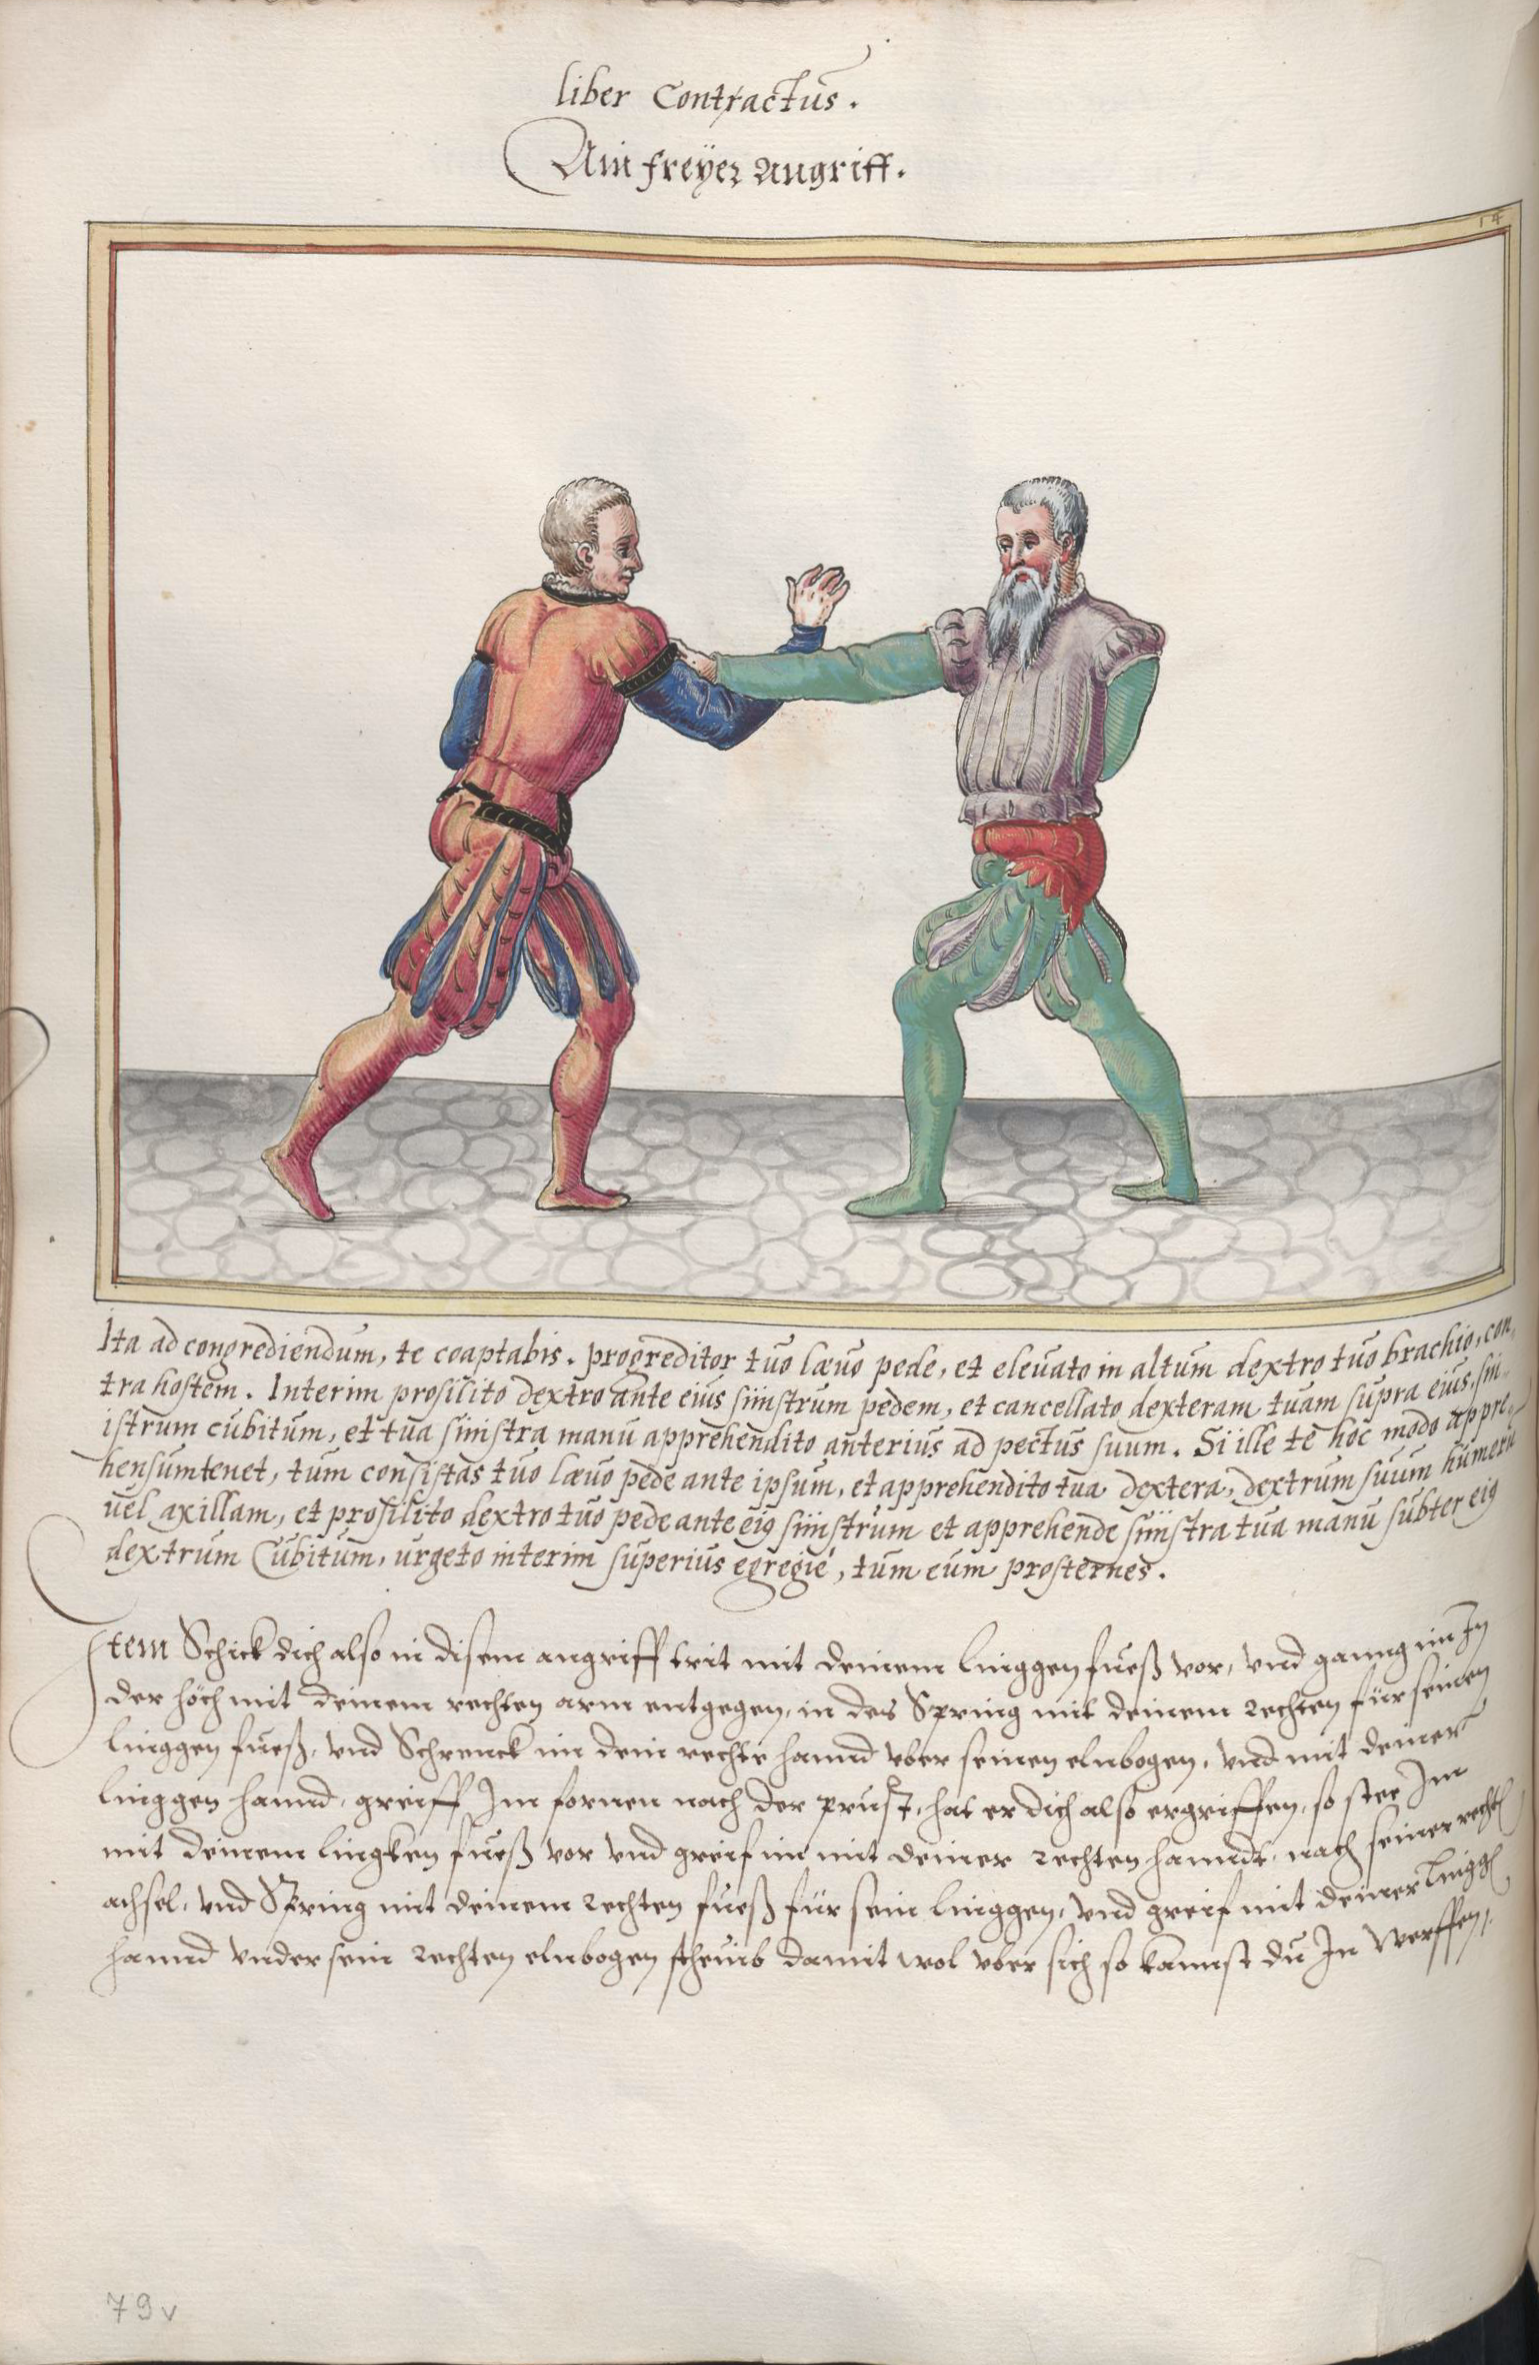 liber Contractus.
Ain freyer Angriff.
14
Ita ad congrediendum, te coaptabis. progreditor tuo lævo pede, et elevato in altum dextro tuo brachio, con,
tra hostem. Interim prosilito dextro ante eius sinistrum pedem, et cancellato dexteram tuam supra eius, sin,
istrum cubitum, et tua sinistra manu apprehendito anterius ad pectus suum. Si ille te hoc modo appre,
hensum tenet, tum consistas tuo lævo pede ante ipsum, et apprehendito tua dextera, dextrum suum humerū
vel axillam, et prosilito dextro tuo pede ante eiꝯ sinistrum et apprehende sinistra tua manu subter eiꝯ
dextrum Cubitum, urgeto interim superius egregié, tum eum prosternes.
Item Schick dich also in disem angriff trit mit deinem linggen fueß vor, vnd ganng im In
der höch mit deinem rechten arm entgegen, in des Spring mit deinem rechten für seinen
linggen fueß, vnd Schrenck im dein rechte hannd vber seinen elnbogen, vnd mit deiner
linggen hannd, greiff Im fornen nach der prust, hat er dich also ergriffen, so stee Im
mit deinem lingken fueß vor vnd greif im mit deiner rechten hanndt, nach seiner recht
achsel, vnd Spring mit deinem rechten fueß für sein linggen, vnd greif mit deiner lingg
hannd vnder sein rechten elnbogen scheub damit wol vber sich so kannst du In werffen,
79v